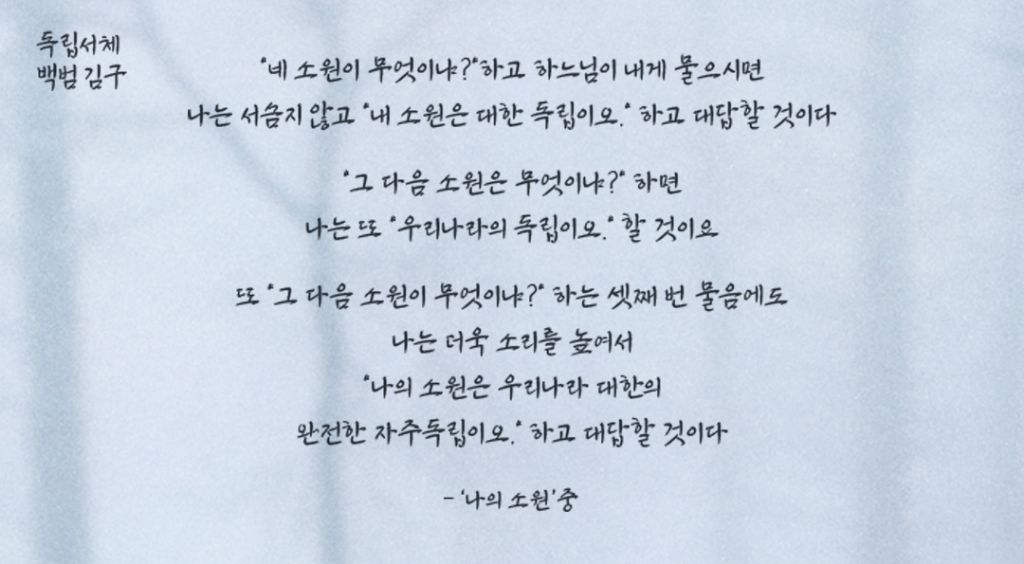 독립서체
백범 김구
"네 소원이 무엇이냐?"하고 하느님이 내게 물으시면
나는 서슴지 않고 "내 소원은 대한 독립이오." 하고 대답할 것이다
"그 다음 소원은 무엇이냐?" 하면
나는 또 "우리나라의 독립이오." 할 것이요
또 "그 다음 소원이 무엇이냐?" 하는 셋째 번 물음에도
나는 더욱 소리를 높여서
"나의 소원은 우리나라 대한의
완전한 자주독립이오." 하고 대답할 것이다
- '나의 소원'중